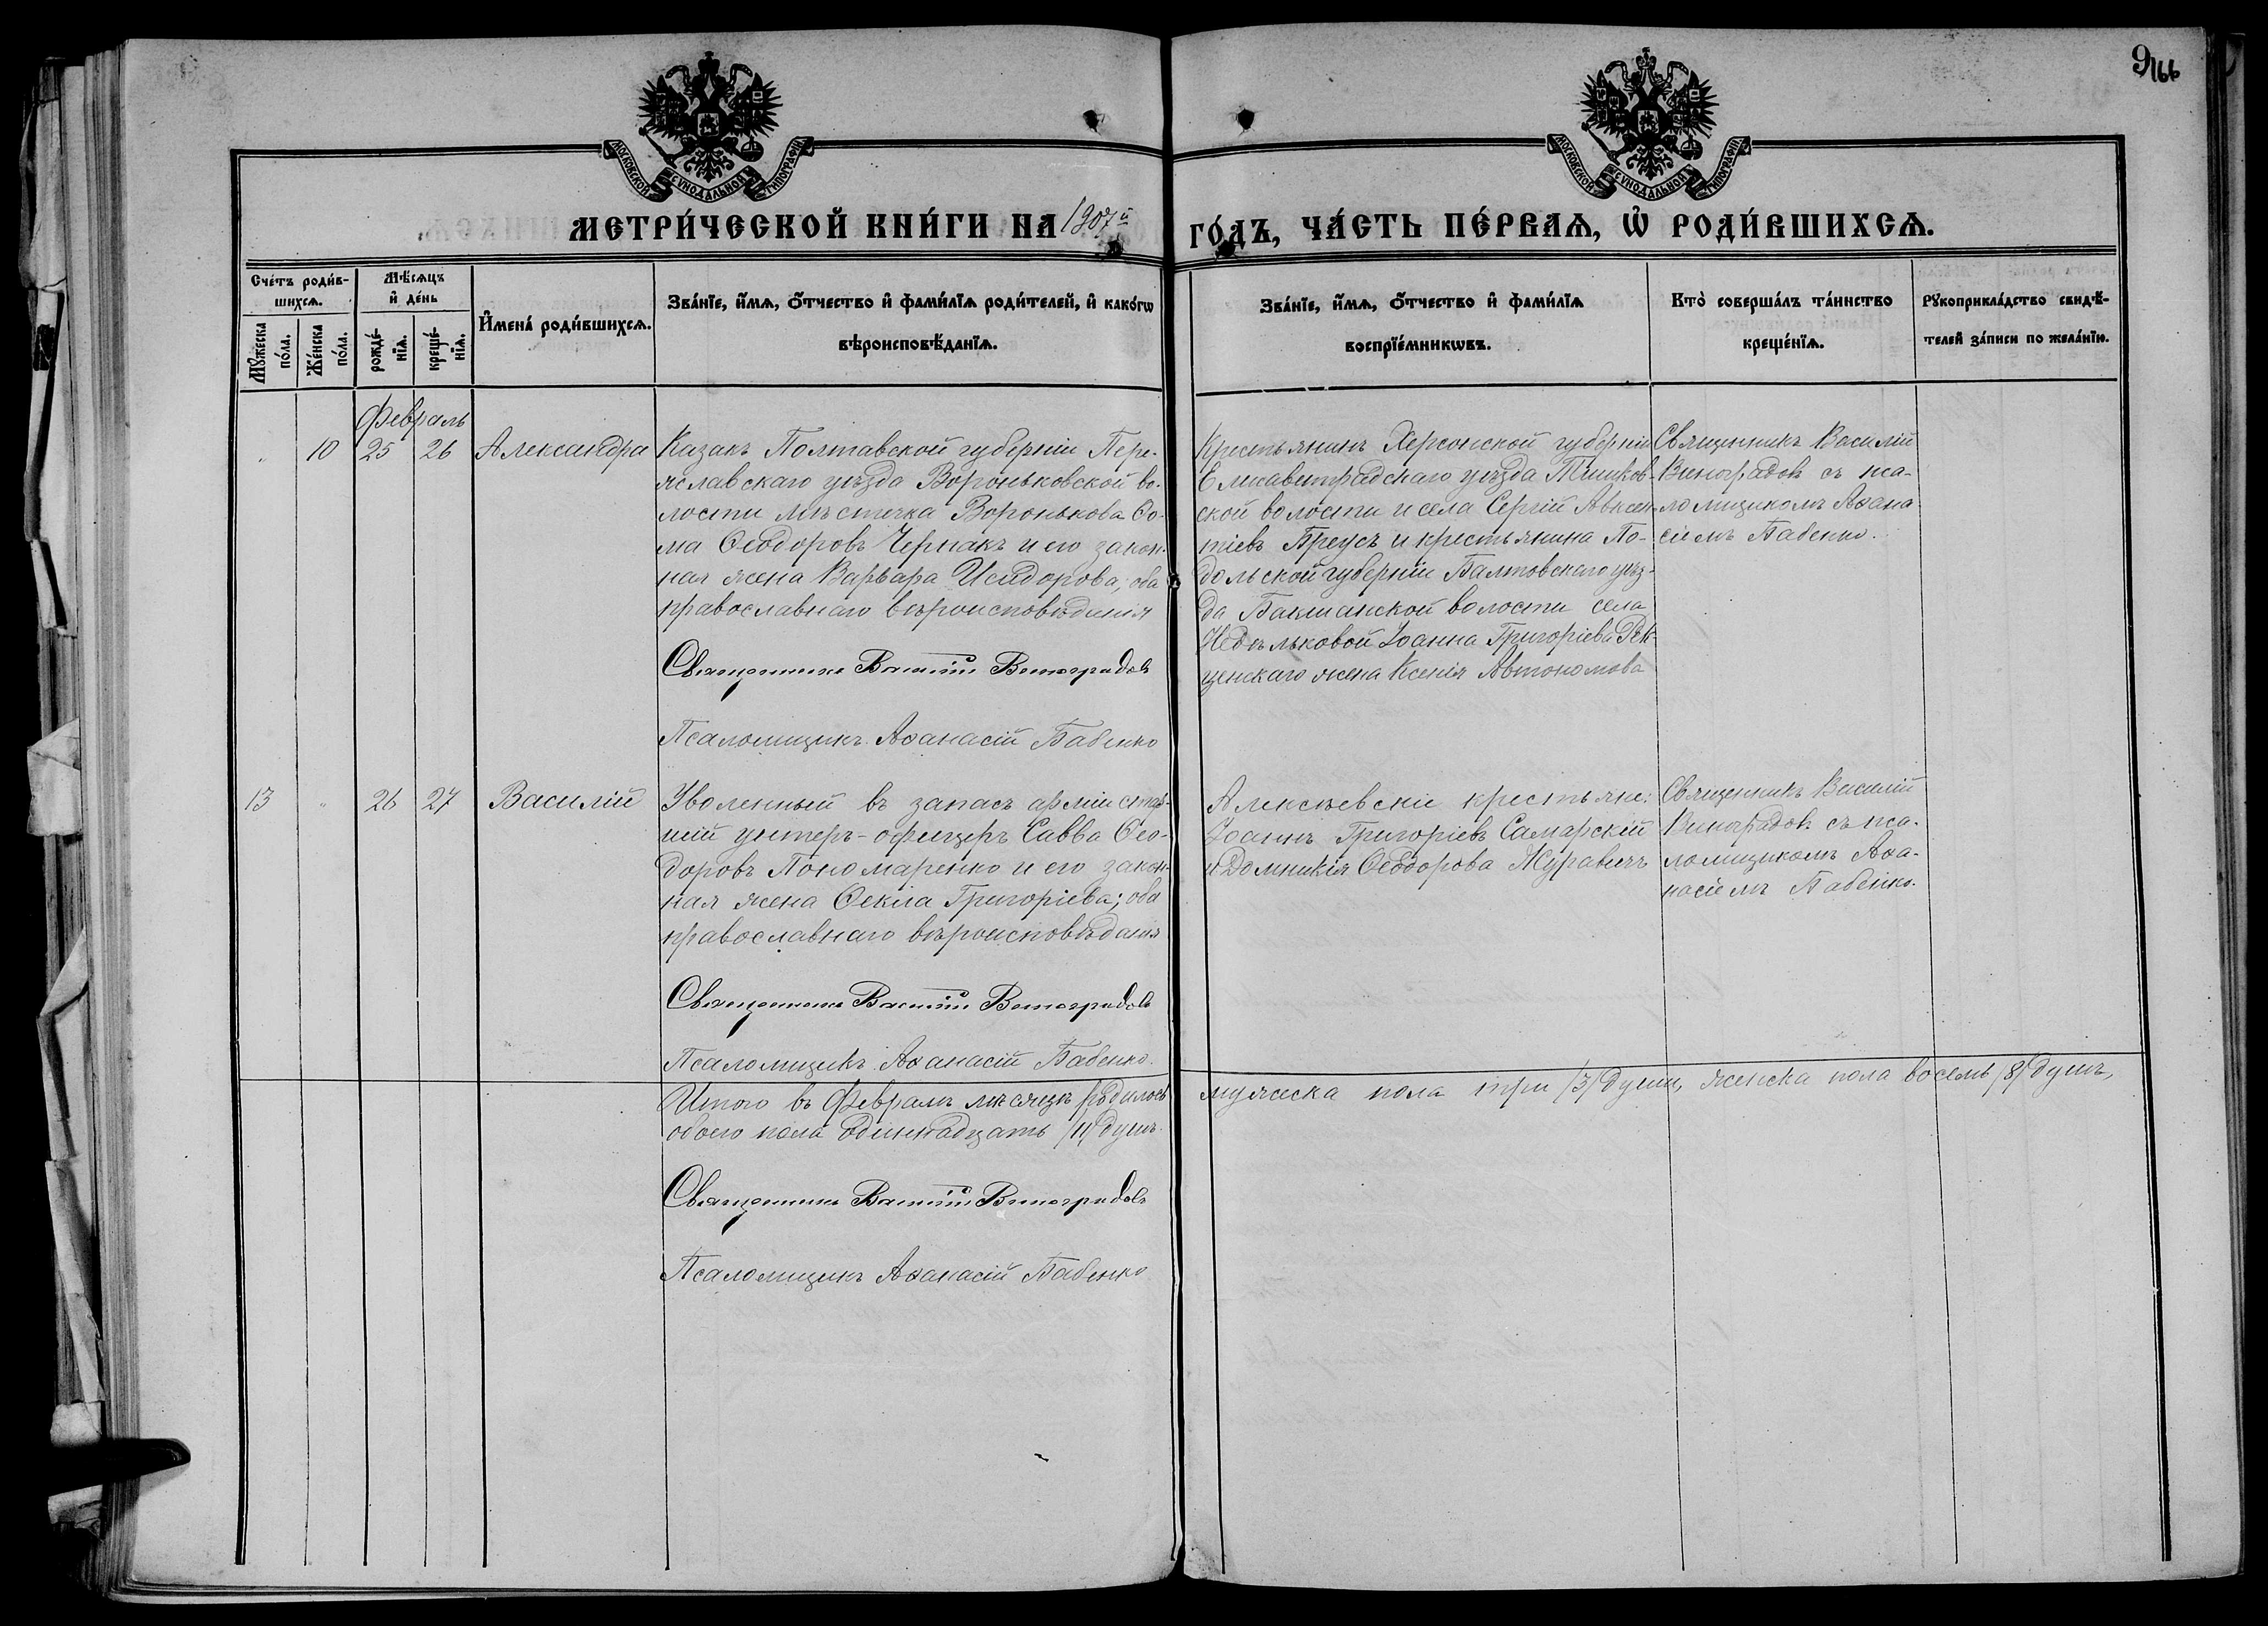 9
166
МОСКОВСКОЙ СѴНОДАЛЬНОЙ ТИПОГРАФІИ
МОСКОВСКОЙ СѴНОДАЛЬНОЙ ТИПОГРАФІИ
МЕТРИ́ЧЕСКОЙ КНИ́ГИ НА 1907й ГО́ДЪ, ЧА́СТЬ ПЕ́РВАѦ, Ѡ҆ РОДИ́ВШИХСѦ.
Сче́тъ роди́в-
шихсѧ.
Мꙋ́жеска
по́ла.
Же́нска
по́ла.
Мѣ́сѧцъ
и҆ де́нь
рожде́-
нїѧ.
креще́-
нїѧ.
И҆мена̀ роди́вшихсѧ.
Зва́нїе, и҆́мѧ, ѻ҆́тчество и҆ фами́лїѧ роди́телей, и҆ како́гѡ
вѣроисповѣ́данїѧ.
Зва́нїе, и҆́мѧ, ѻ҆́тчество и҆ фами́лїѧ
воспрїе́мникѡвъ.
Кто̀ соверша́лъ та́инство
креще́нїѧ.
Рꙋкоприкла́дство свидѣ́-
телей за́писи по жела́нїю.
Февраль
" 10 25 26 Александра
Казакъ Полтавской губерніи Пере-
яславскаго уѣзда Вороньковской во-
лости мѣстечка Воронькова Ѳо-
ма Ѳеодоровъ Чернакъ и его закон-
ная жена Варвара Исидорова; оба
православнаго вѣроисповѣданія
Священникъ Василій Виноградовъ
Псаломщикъ Аѳанасій Бабенко
Крестьянинъ Херсонской губерніи
Елисаветградскаго уѣзда Тишков-
ской волости и села Сергій Авксен-
тіевъ Преусъ и крестьянина По-
дольской губерніи Балтовскаго уѣз-
да Бакшанской волости села
Недѣльковой Іоанна Григоріева
жена Ксенія Автономова
Священникъ Василій
Виноградовъ съ пса-
ломщикомъ Аѳана
сіемъ Бабенко.
13 " 26 27 Василій
Уволенный въ запасъ арміи стар-
шій унтеръ-офицеръ Савва Ѳео-
доровъ Пономаренко и его закон-
ная жена Ѳекла Григоріева; оба
православнаго вѣроисповѣданія
Священникъ Василій Виноградовъ
Псаломщикъ Аѳанасій Бабенко.
Алексѣевскіе крестьяне:
Іоаннъ Григоріевъ Самарскій
и Домникія Ѳеодорова Журавичъ
Священникъ Василій
Виноградовъ съ пса-
ломщикомъ Аѳа-
насіемъ Бабенко.
Итого въ Февралѣ мѣсяцѣ родилось мужеска пола три /3/ души, женска пола восемь /8/ душъ,
обоего пола одиннадцать /11/ душъ.
Священникъ Василій Виноградовъ
Псаломщикъ Аѳанасій Бабенко